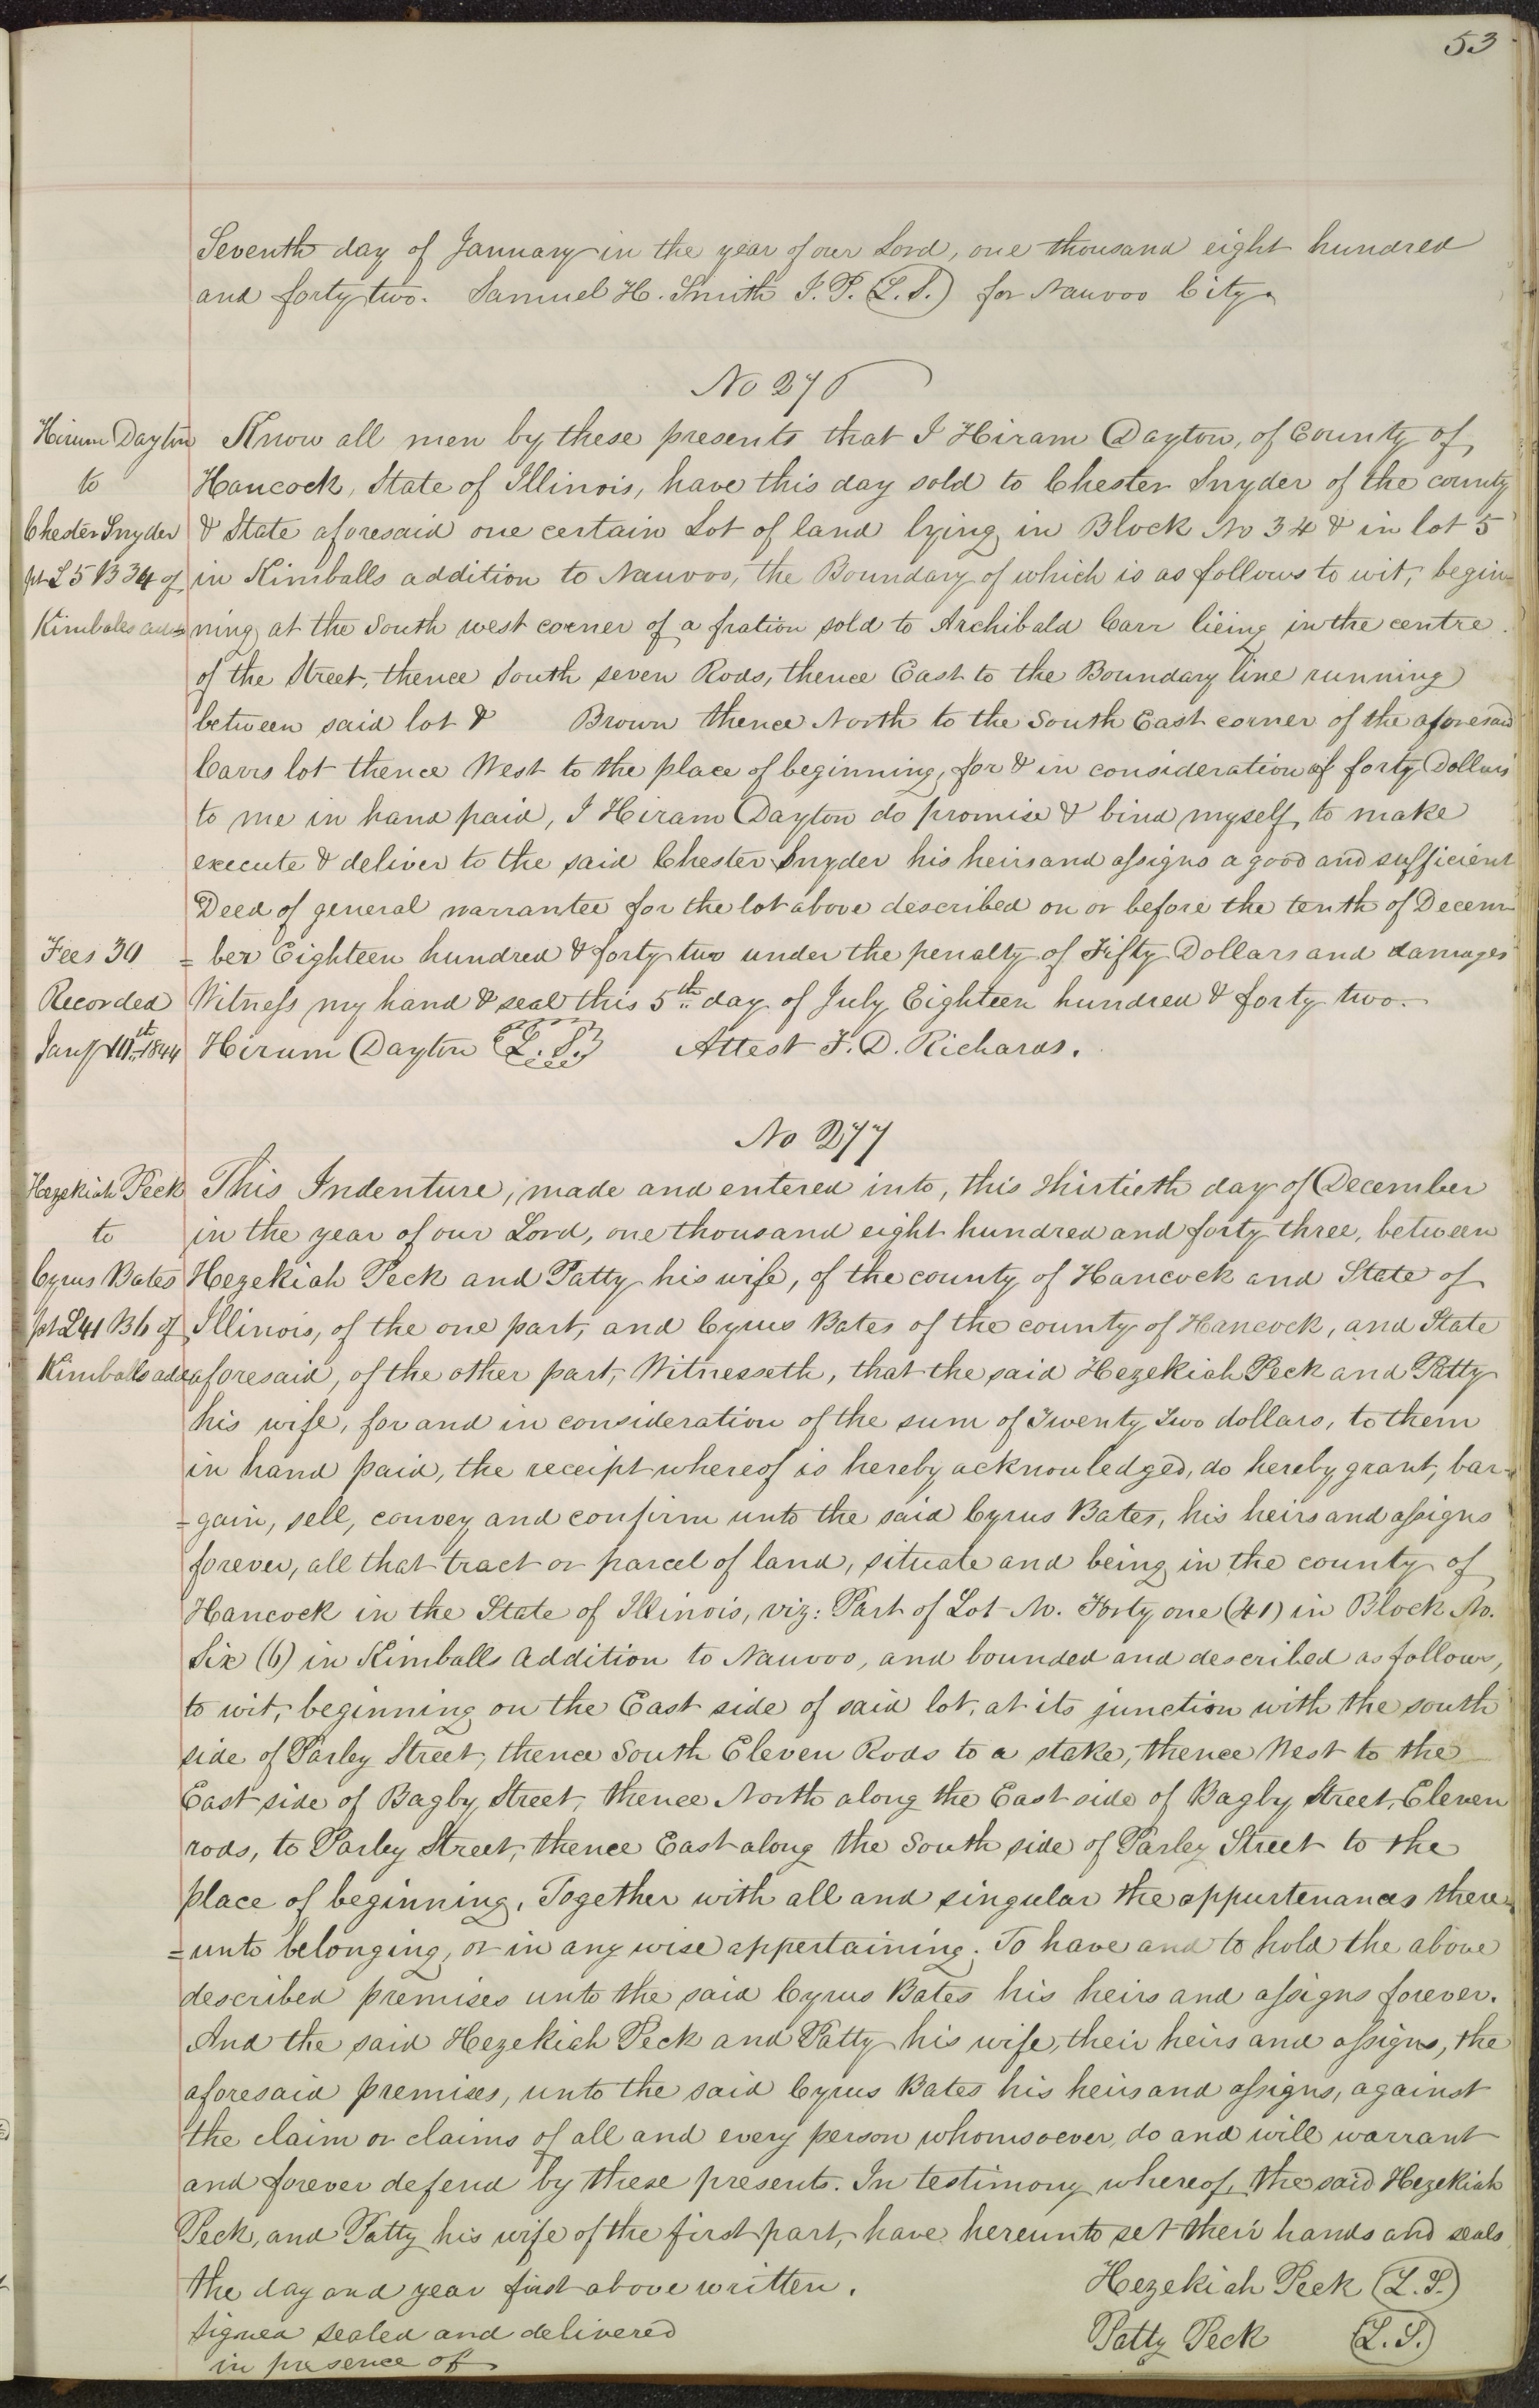 53
Seventh day of January in the year of our Lord, one thousand eight hundred
and forty two. Samuel H. Smith J. P. (L. S.) for Nauvoo City
No 276
Hirum Dayton
to
Chester Snyder
pt L 5 B 34 of
Kimbales add
Know all men by these presents that I Hiram Dayton, of County of
Hancock, State of Illinois, have this day sold to Chester Snyder of the county
& State aforesaid one certain Lot of land lying in Block No 34 & in lot 5
in Kimballs addition to Nauvoo, the Boundary of which is as follows to wit, begin=
ning at the South west corner of a fration sold to Archibald Carr lieing in the centre
of the Street, thence South seven Rods, thence East to the Boundary line running
between said lot & Brown thence North to the South East corner of the aforesaid
Carrs lot thence West to the place of beginning, for & in consideration of forty Dollars
to me in hand paid, I Hiram Dayton do promise & bind myself, to make
execute & deliver to the said Chester Snyder his heirs and assigns a good and sufficient
Deed of general warrantee for the lot above described on or before the tenth of Decem
= ber Eighteen hundred & forty two under the penalty of Fifty Dollars and damages
Witness my hand & seal this 5th day of July Eighteen hundred & forty two.
Hirum Dayton (L. S.) Attest F. D. Richards.
Fees 30
Recorded
Jany 10th 1844
No 277
Hezekiah Peck
to
Cyrus Bates
pt L 41 B 6 of
Kimballs add
This Indenture, made and entered into, this thirtieth day of December
in the year of our Lord, one thousand eight hundred and forty three, between
Hezekiah Peck and Patty his wife, of the county of Hancock and State of
Illinois, of the one part, and Cyrus Bates of the county of Hancock, and State
aforesaid, of the other part, Witnesseth, that the said Hezekiah Peck and Patty
his wife, for and in consideration of the sum of Twenty Two dollars, to them
in hand paid, the receipt whereof is hereby acknowledged, do hereby grant, bar-
=gain, sell, convey and confirm unto the said Cyrus Bates, his heirs and assigns
forever, all that tract or parcel of land, situate and being in the county of
Hancock in the State of Illinois, viz: Part of Lot No. Forty one (41) in Block No.
Six (6) in Kimballs Addition to Nauvoo, and bounded and described as follows,
to wit, beginning on the East side of said lot, at its junction with the south
side of Parley Street, thence South Eleven Rods to a stake, thence West to the
East side of Bagby Street, thence North along the East side of Bagby Street, Eleven
rods, to Parley Street, thence East along the South side of Parley Street to the
place of beginning, Together with all and singular the appurtenances there=
=unto belonging, or in any wise appertaining. To have and to hold the above
described premises unto the said Cyrus Bates his heirs and assigns forever.
And the said Hezekiah Peck and Patty his wife, their heirs and assigns, the
aforesaid premises, unto the said Cyrus Bates his heirs and assigns, against
the claim or claims of all and every person whomsoever, do and will warrant
and forever defend by these presents. In testimony whereof, the said Hezekiah
Peck, and Patty his wife of the first part, have hereunto set their hands and seals
the day and year first above written. Hezekiah Peck (L. S.)
Signed sealed and delivered Patty Peck (L. S.)
in presence of